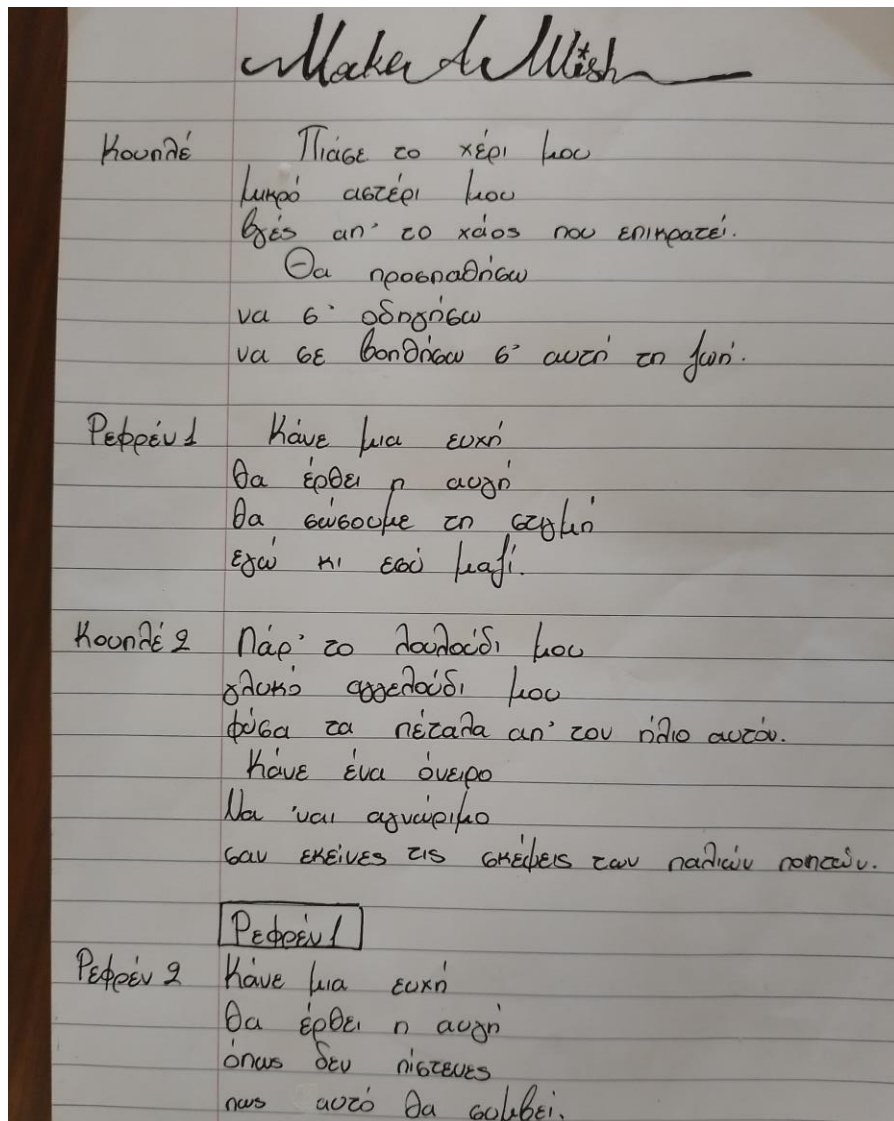 Make A Wish
Κουπλέ Πιάσε το χέρι μου
μικρό αστέρι μου
βγές απ' το χάος που επικρατεί.
Θα προσπαθήσω
να σ' οδηγήσω
να σε βοηθήσω σ' αυτή τη ζωή.
Ρεφρέν 1 Κάνε μια ευχή
θα έρθει η αυγή
θα σώσουμε τη στιγμή
εγώ κι εσύ μαζί.
Κουπλέ 2 Πάρ' το λουλούδι μου
γλυκό αγγελούδι μου
φύσα τα πέταλα απ' τον ήλιο αυτόν.
Κάνε ένα όνειρο
Να 'ναι αγνώριμο
σαν εκείνες τις σκέψεις των παλιών ποητών.
Ρεφρέν 1
Ρεφρέν 2 Κάνε μια ευχή
θα έρθει η αυγή
όπως δεν πίστευες
πως αυτό θα συμβεί.